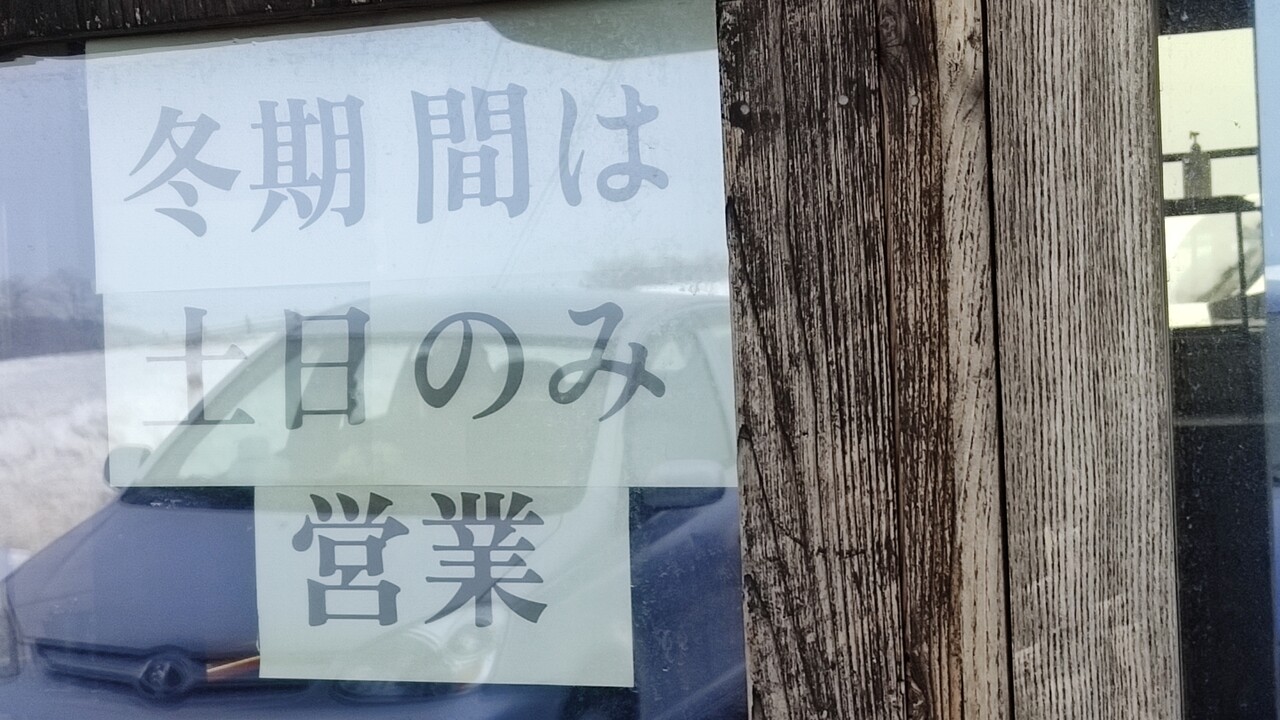 冬期間は
土日のみ
営業